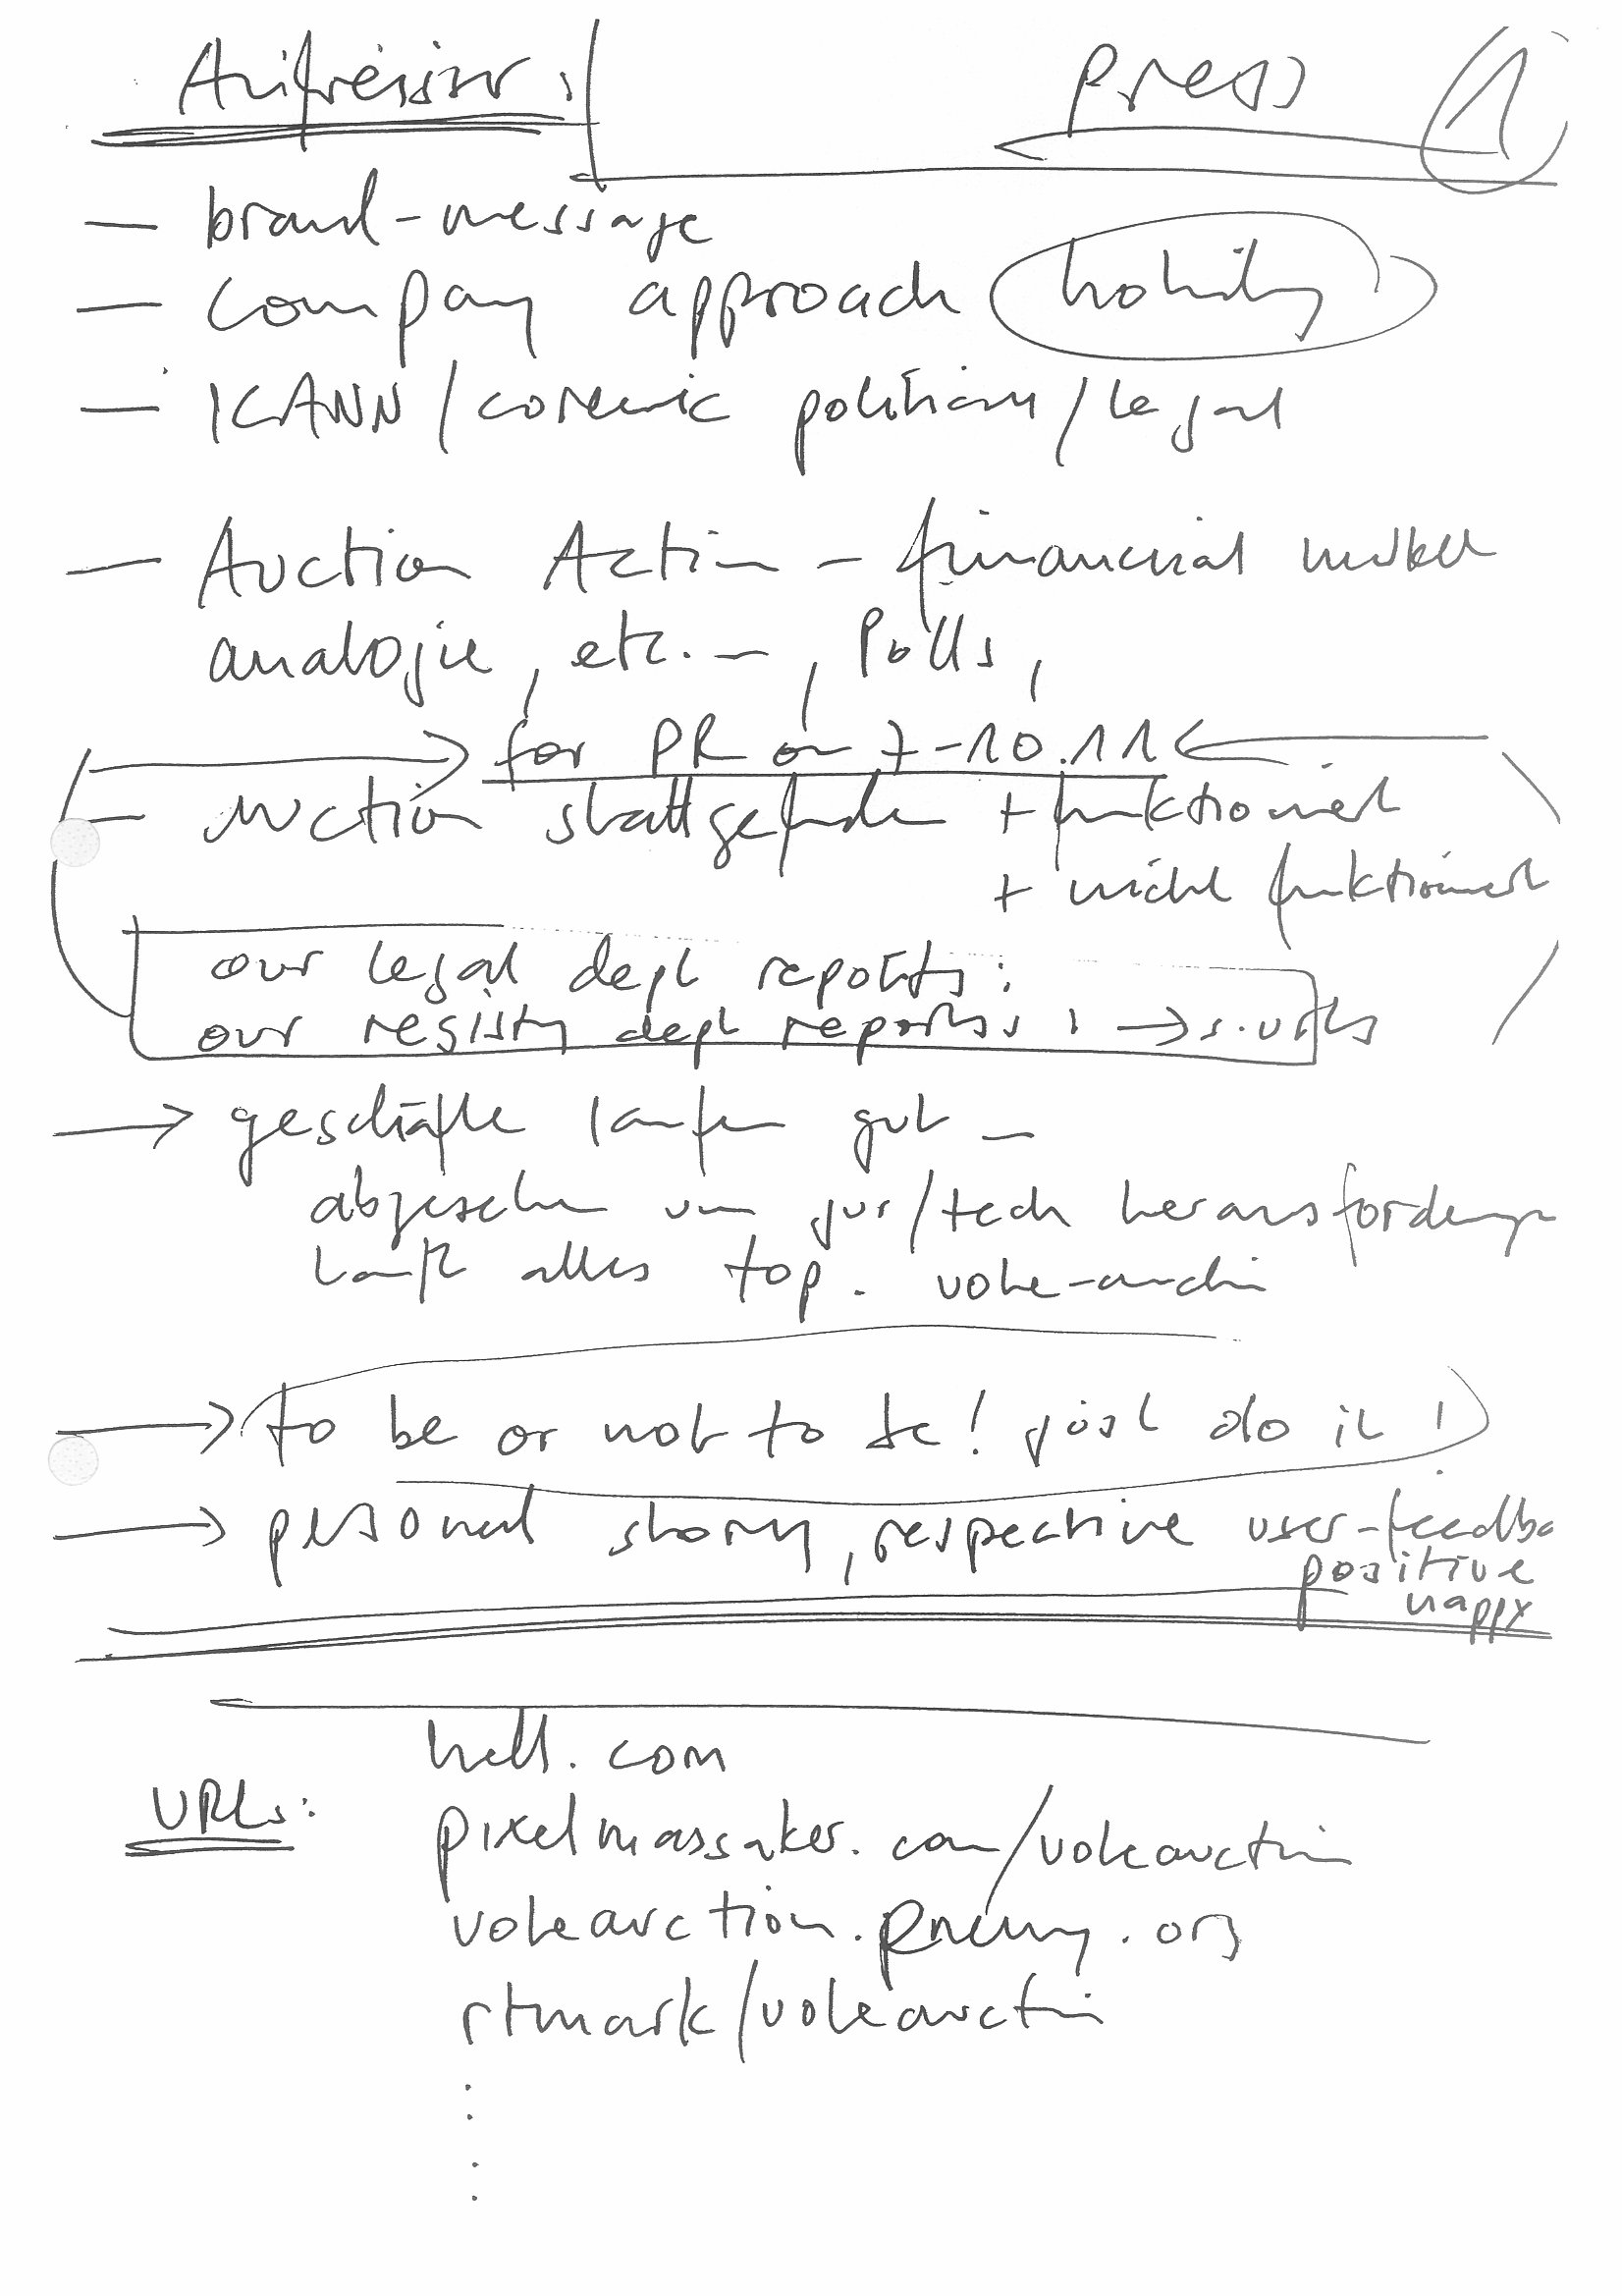 press 1
- brand-message
- company approach holding
- ICANN / corenic politicians / legal
- Auction Action - financial
analogie, etc. -, Polls,
for PR on 7-10.11
- Auction stattgefunden + funktioniert
+ nicht funktioniert
our legal dept reports:
our registry dept reports: → s. urls
→ geschäfte laufen gut -
abgesehen von jur/tech herausforderungen
läuft alles top. vote-auction
→ to be or not to be! just do it!
→ personal story, respective user-feedba
positive
happy
hell.com
URLs:
pixelmassaker.com/voteauction
voteauction.enemy.org
rtmark/voteauction